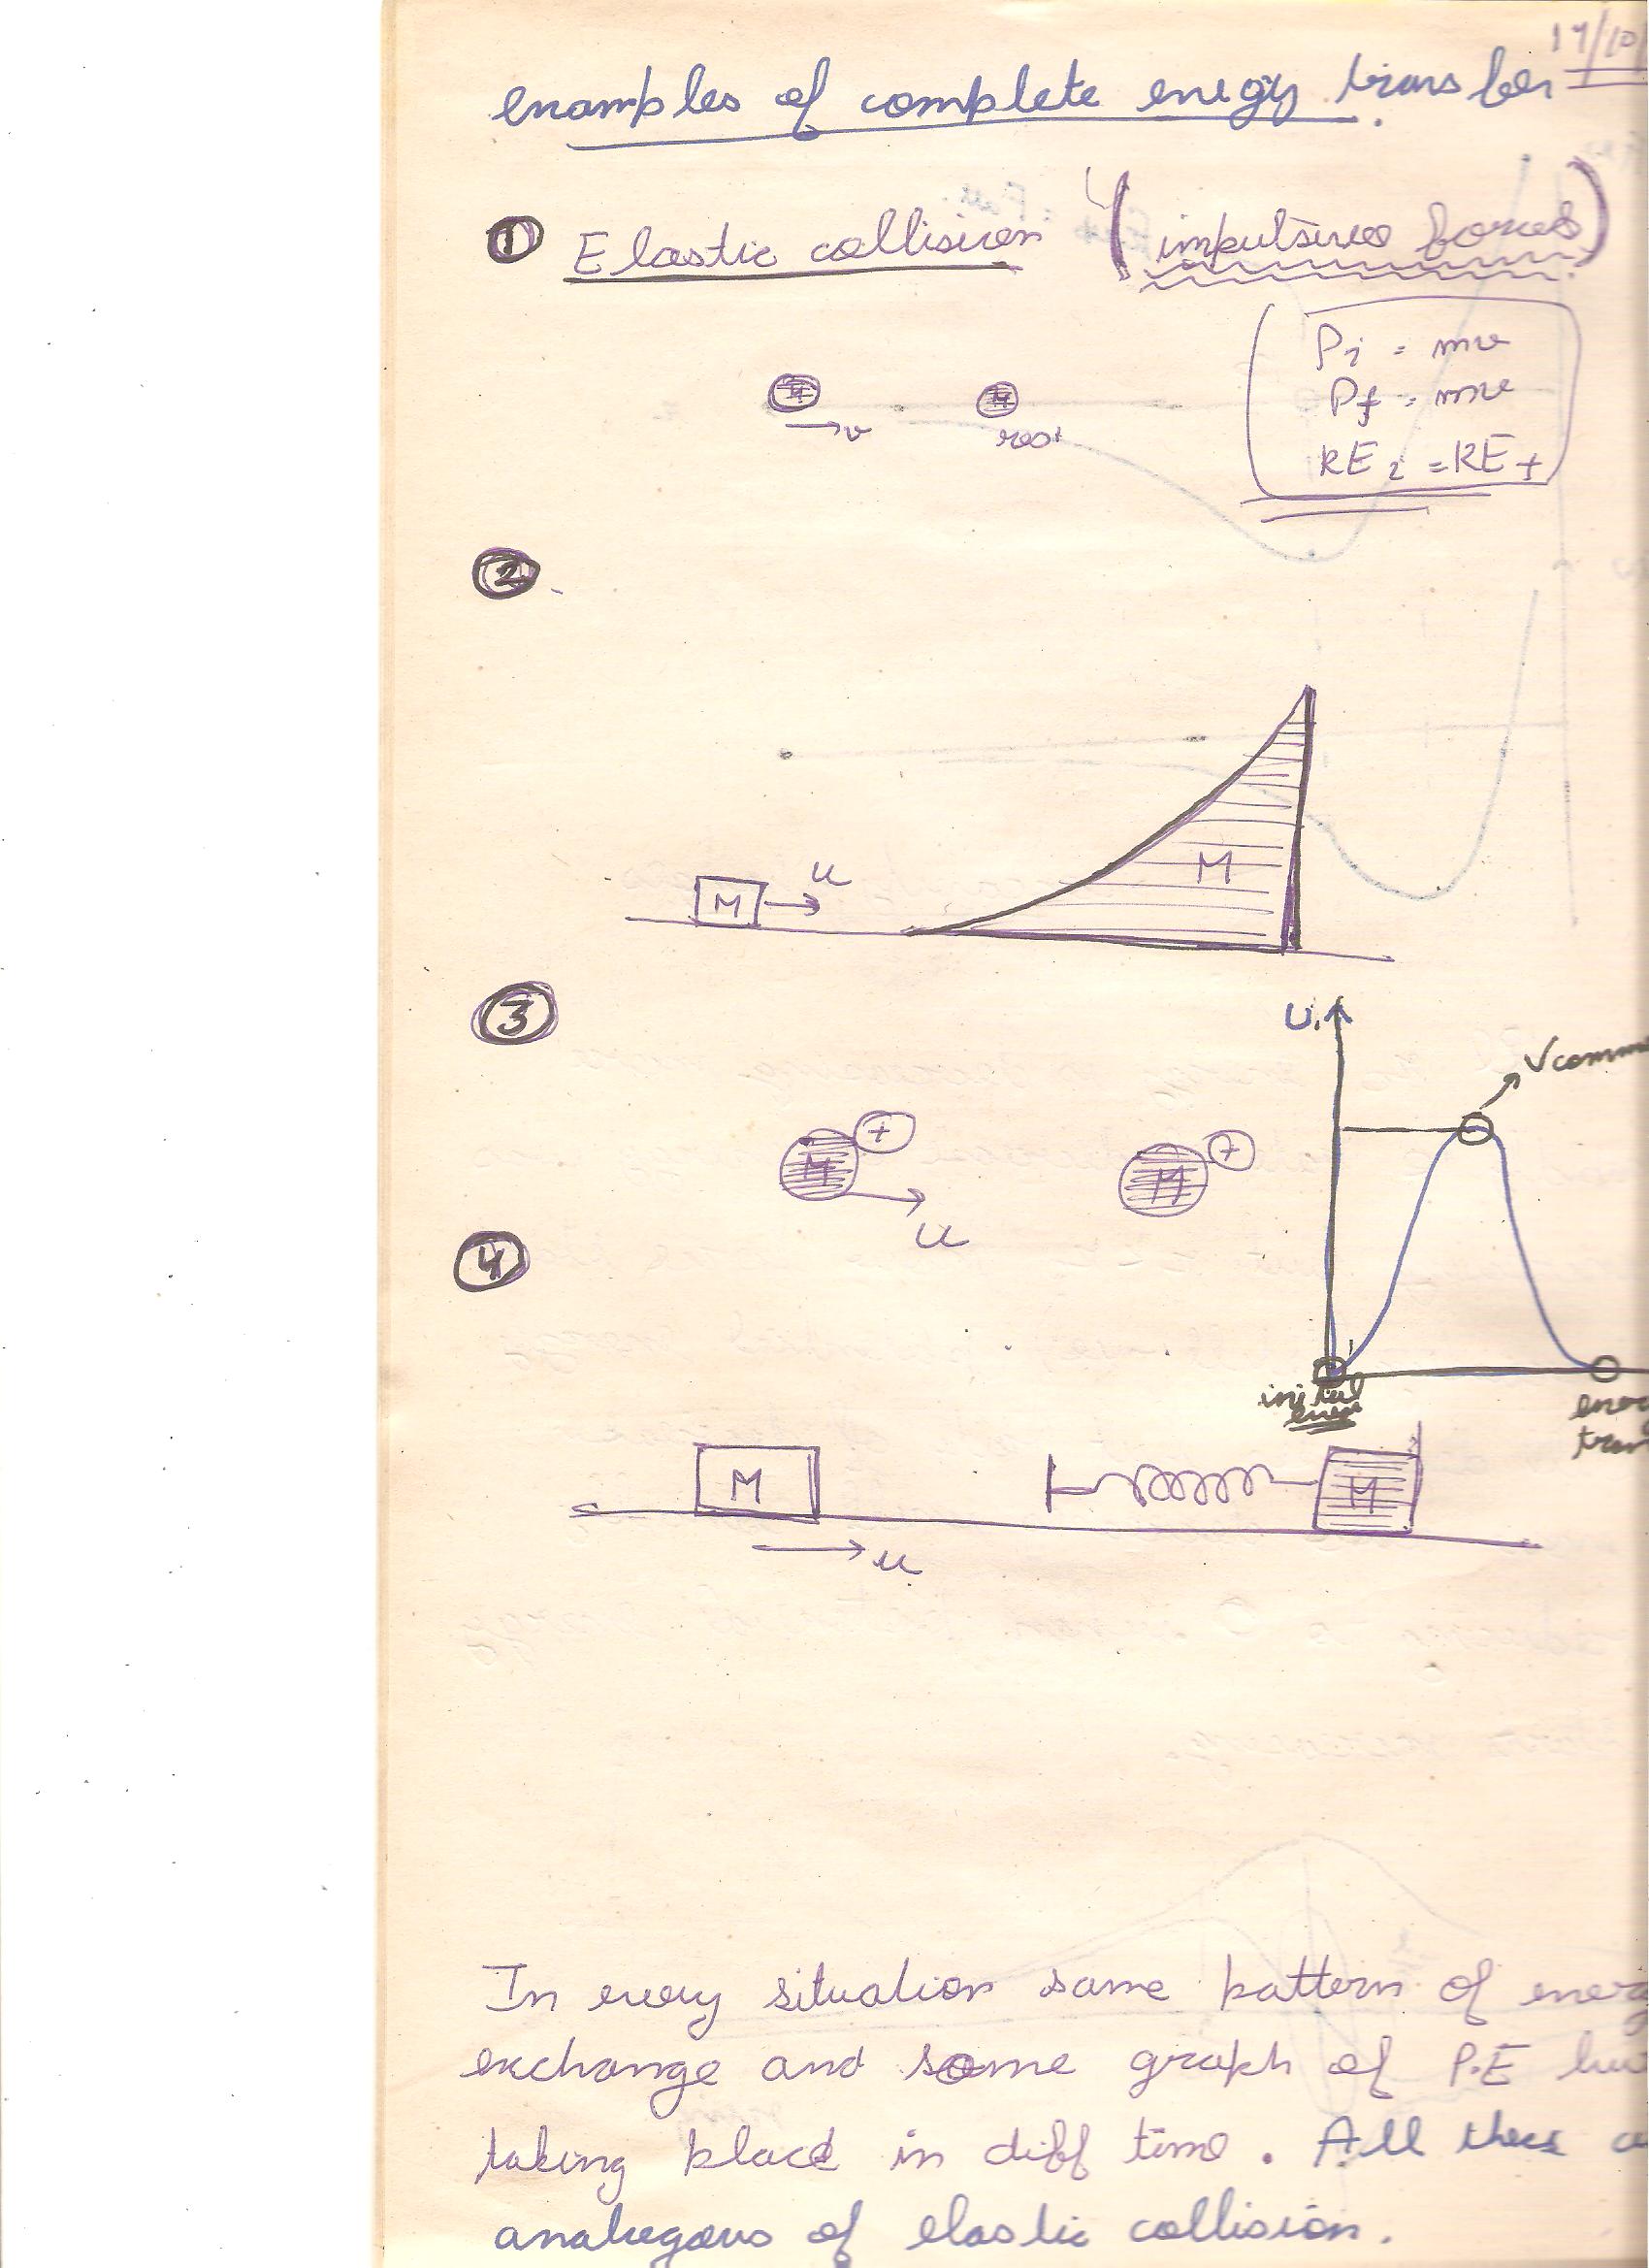 17/10
examples of complete energy transfer
① Elastic collision (impulsive forces)
Pi = mv
Pf = mv
KEi = KEf
M M
→v rest
②
M
M → u
③
U
Vcomm
M + M +
u
④
initial
energy
ener
tran
M M
u
In every situation same pattern of energ
exchange and some graph of P.E bu
taking place in diff time. All these a
analogous of elastic collision.